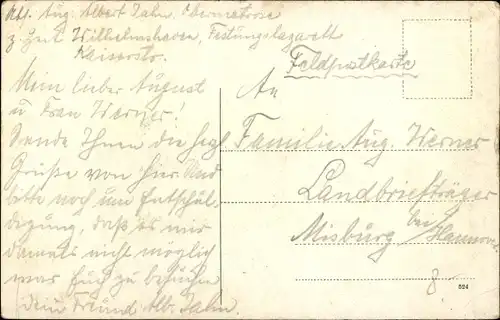 Abs. Aug. Albert Jahn, Obermatrose
z. Zeit Wilhelmshaven, Festungslazarett
Kaiserstr.
Feldpostkarte
Mein lieber August
u Frau Werner!
Sende Ihnen die hzgl
Grüße von hier und
bitte noch um Entschul
digung, daß es mir
damals nicht möglich
war Euch zu besuchen
dein Freund Alb. Jahn.
An
Familie Aug. Werner
Landbriefträger
Misburg bei Hannover
8
024